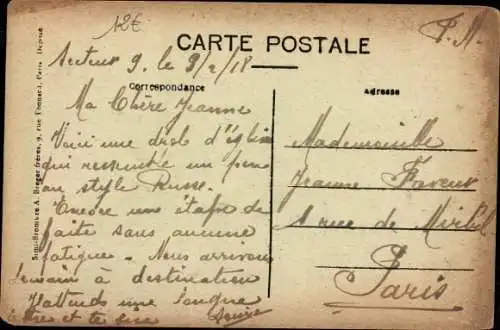 12€
F. M.
CARTE POSTALE
Secteur 9. le 9/2/18
Correspondance
Adresse
Ma Chère Jeanne
Voici une drole d'église
qui ressemble un peu
au style Russe.
Encore une étape de
faite sans aucune
fatigue. Nous arrivons
demain à destination
J'attends une longue
lettre et te
Mademoiselle
Jeanne
rue de
Paris
Simi-Bromure A. Breger frères, 9, rue Thénard, Paris Déposé